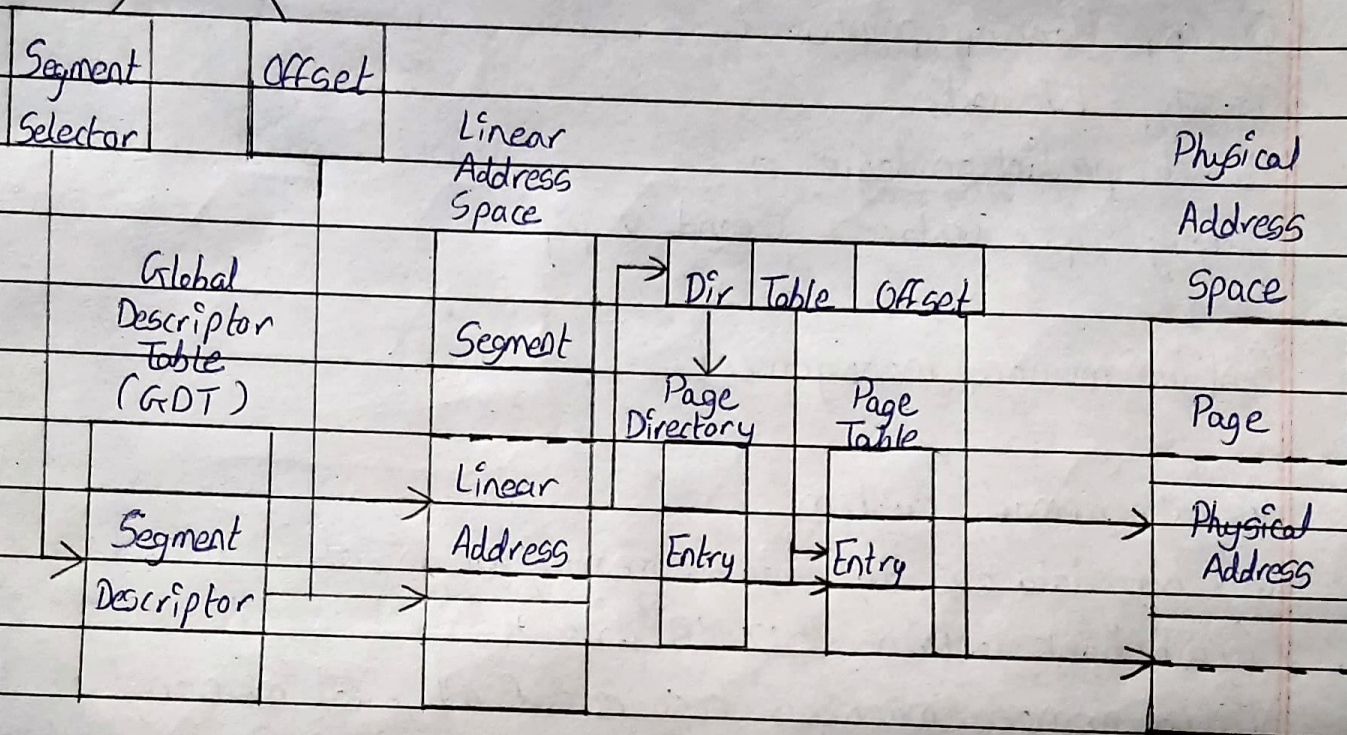 Segment
Selector
Offset
Linear
Address
Space
Physical
Address
Space
Global
Descriptor
Table
(GDT)
Segment
Dir
Table
Offset
Page
Directory
Page
Table
Page
Linear
Address
Segment
Descriptor
Entry
Entry
Physical
Address